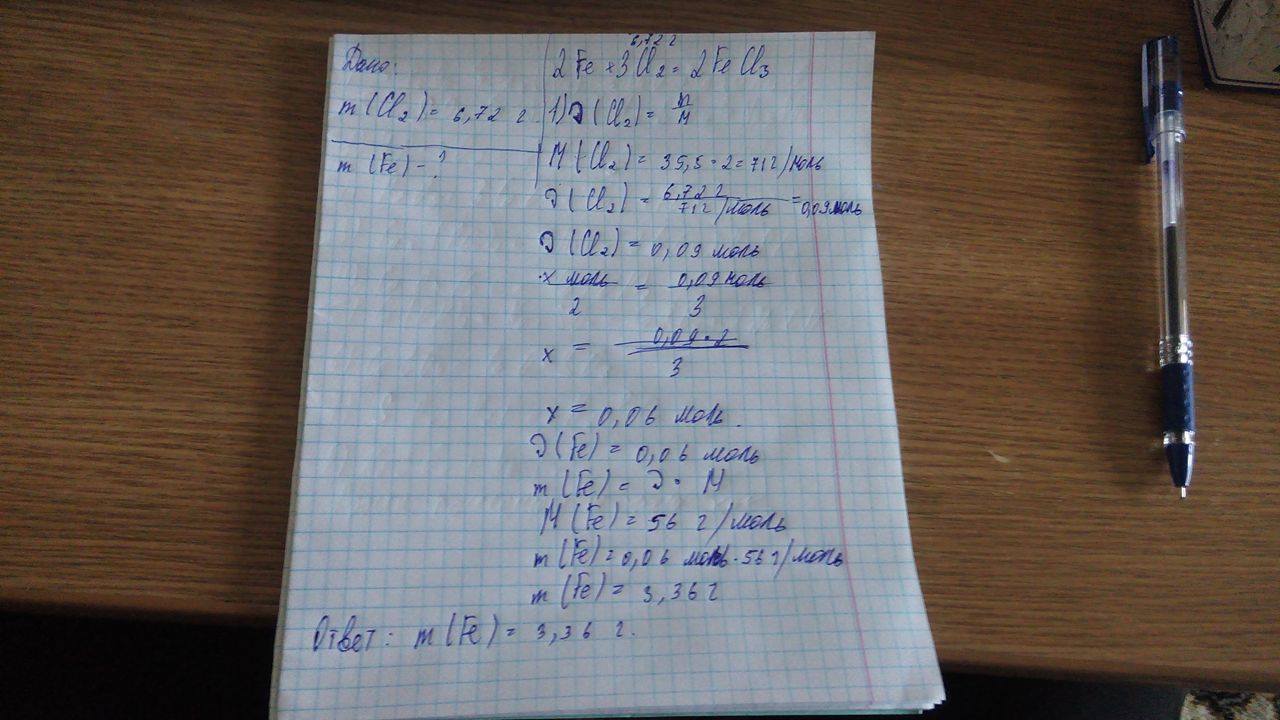 Дано:
m (Cl2) = 6,72 г
m (Fe) - ?
6,72 г
2Fe + 3Cl2 = 2FeCl3
1) ν (Cl2) = m/M
M (Cl2) = 35,5 · 2 = 71 г/моль
ν (Cl2) = 6,72 г / 71 г/моль = 0,09 моль
ν (Cl2) = 0,09 моль
x моль / 2 = 0,09 моль / 3
x = 0,09 · 2 / 3
x = 0,06 моль.
ν (Fe) = 0,06 моль
m (Fe) = ν · M
M (Fe) = 56 г/моль
m (Fe) = 0,06 моль · 56 г/моль
m (Fe) = 3,36 г
Ответ: m (Fe) = 3,36 г.